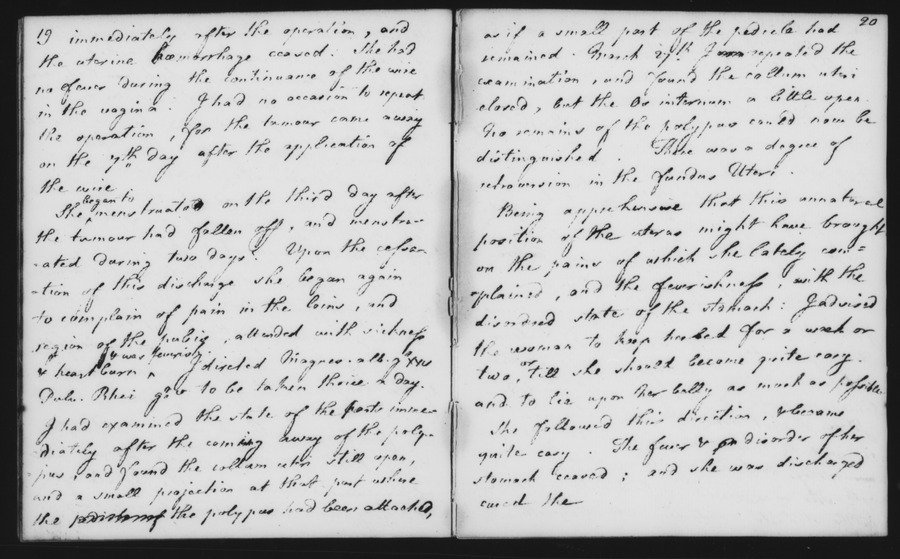 19 immediately after the operation, and
the uterine hæmorrhage ceased. She had
no fever during the continuance of the wire
in the vagina. I had no occasion to repeat
the operation, for the tumour came away
on the 7th day after the application of
the wire
began to
She menstruate on the third day after
the tumour had fallen off, and menstru-
-ated during two days. Upon the cessa-
-tion of this discharge she began again
to complain of pain in the loins, and
region of the pubis, attended with sickness
& was feverish.
& heartburn I directed Magnes. alb. gr xxv
Pulv. Rhei to be taken thrice a day.
I had examined the state of the parts imme-
-diately after the coming away of the poly-
-pus, and found the collum uteri still open,
and a small projection at that part where
the the polypus had been attached,
20
as if a small part of the pedicle had
remained. March 27th. I repeated the
examination, and found the collum uteri
closed, but the Os internum a little open.
No remains of the polypus could now be
distinguished. There was a degree of
retroversion in the fundus Uteri.
Being apprehensive that this unnatural
position of the uterus might have brought
on the pains of which she lately com=
-plained, and the feverishness, with the
disordered state of the stomach: I advised
the woman to keep her bed for a week or
two, or till she should become quite easy.
and to lie upon her belly as much as possible.
She followed this direction, & became
quite easy. The fever & disorder of her
stomach ceased; and she was discharged
cured the